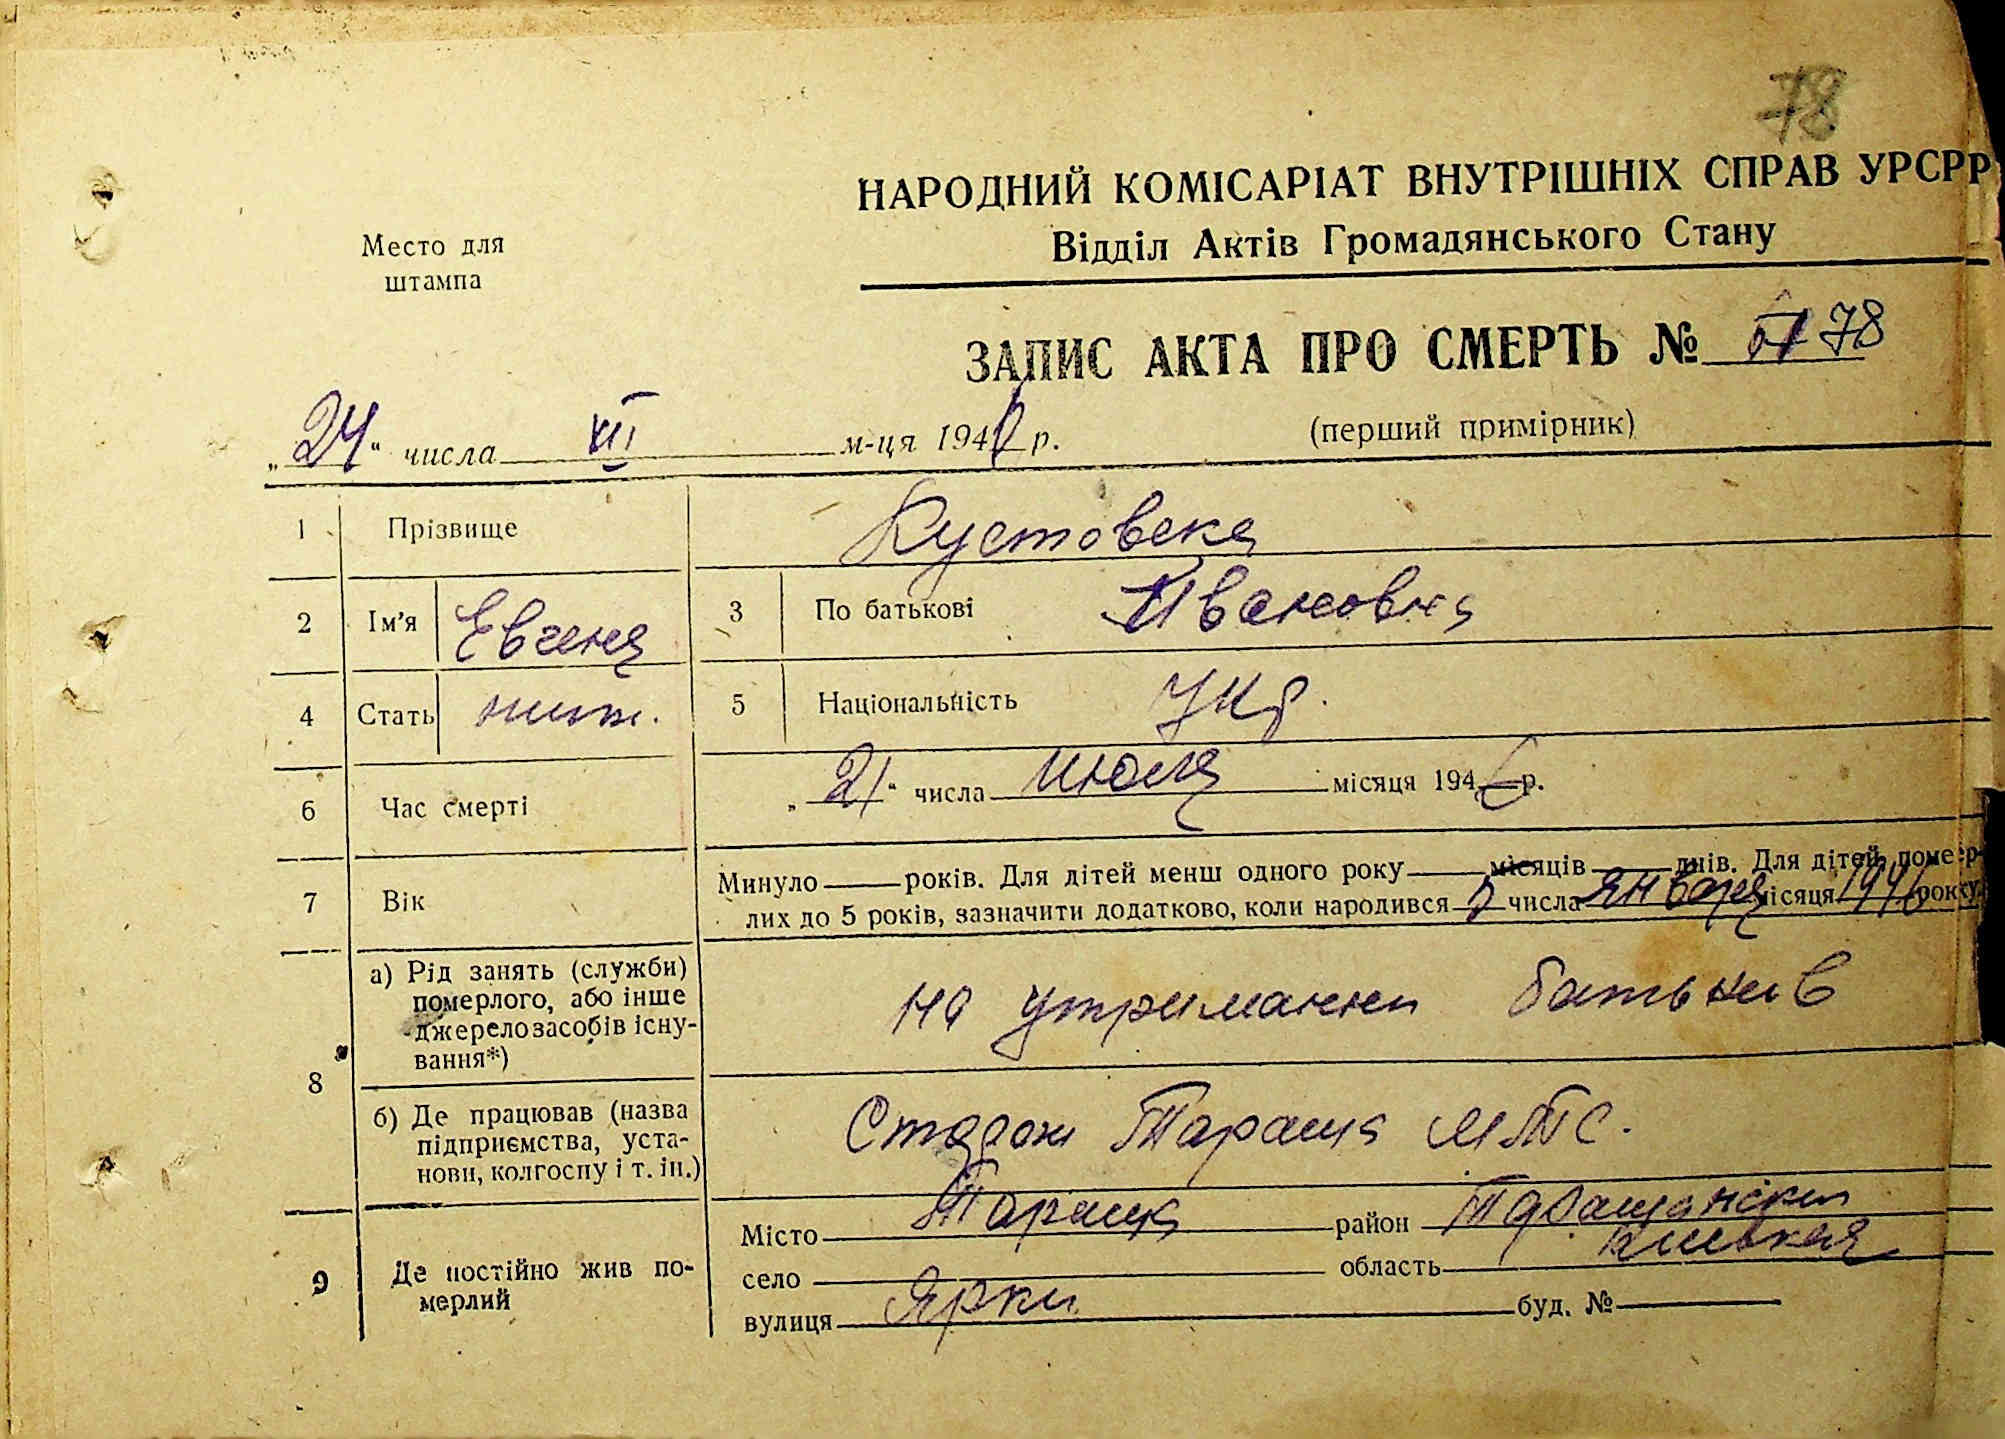 78
НАРОДНИЙ КОМІСАРІАТ ВНУТРІШНІХ СПРАВ УРСРР
Відділ Актів Громадянського Стану
Место для
штампа
ЗАПИС АКТА ПРО СМЕРТЬ № 78
(перший примірник)
„24“ числа VII м-ця 1946 р.
1 Прізвище Кустовска
2 Ім'я Евгения 3 По батькові Ивановна
4 Стать 5 Національність Укр.
6 Час смерті „21“ числа июля місяця 1946 р.
7 Вік Минуло років. Для дітей менш одного року місяців днів. Для дітей, помер-
лих до 5 років, зазначити додатково, коли народився 5 числа января місяця 1946 року
8 а) Рід занять (служби)
померлого, або інше
джерело засобів існу-
вання*)
на утриманни батькив
б) Де працював (назва
підприємства, уста-
нови, колгоспу і т. ін.)
Тараща МТС.
9 Де постійно жив по-
мерлий
Місто Тараща район Таращански
село область Киевская
вулиця Ярки буд. №